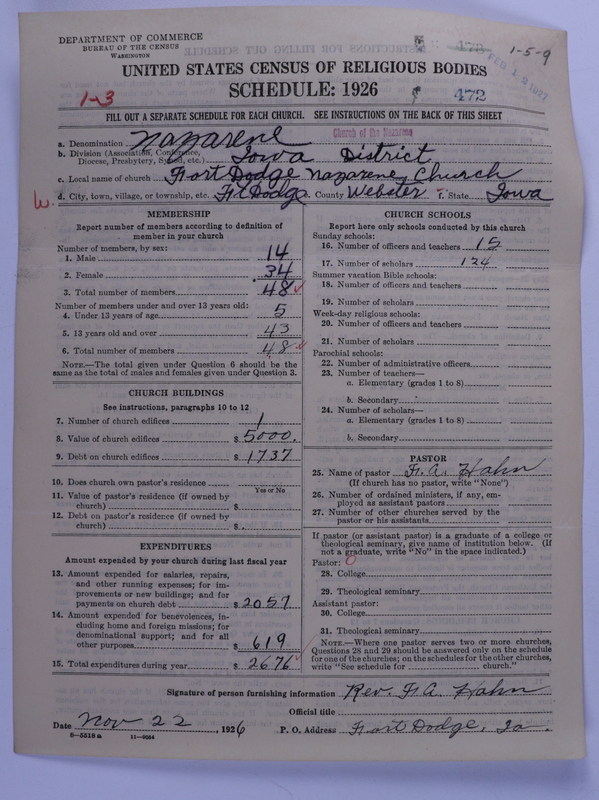 DEPARTMENT OF COMMERCE
BUREAU OF THE CENSUS
WASHINGTON
472
1-5-9
FEB 12 1927
UNITED STATES CENSUS OF RELIGIOUS BODIES
SCHEDULE: 1926
1-3
472
FILL OUT A SEPARATE SCHEDULE FOR EACH CHURCH. SEE INSTRUCTIONS ON THE BACK OF THIS SHEET
Church of the Nazarene
a. Denomination Nazarene
b. Division (Association, Conference, Diocese, Presbytery, Synod, etc.) Iowa District
c. Local name of church Fort Dodge Nazarene Church
W.
d. City, town, village, or township, etc. Ft Dodge e. County Webster f. State Iowa
MEMBERSHIP
Report number of members according to definition of
member in your church
Number of members, by sex:
1. Male 14
2. Female 34
3. Total number of members 48
Number of members under and over 13 years old:
4. Under 13 years of age 5
5. 13 years old and over 43
6. Total number of members 48
NOTE.—The total given under Question 6 should be the
same as the total of males and females given under Question 3.
CHURCH BUILDINGS
See instructions, paragraphs 10 to 12
7. Number of church edifices 1
8. Value of church edifices $ 5000.
9. Debt on church edifices $ 1737
10. Does church own pastor's residence
Yes or No
11. Value of pastor's residence (if owned by
church) $
12. Debt on pastor's residence (if owned by
church) $
EXPENDITURES
Amount expended by your church during last fiscal year
13. Amount expended for salaries, repairs,
and other running expenses; for im-
provements or new buildings; and for
payments on church debt $ 2057
14. Amount expended for benevolences, in-
cluding home and foreign missions; for
denominational support; and for all
other purposes $ 619
15. Total expenditures during year $ 2676
CHURCH SCHOOLS
Report here only schools conducted by this church
Sunday schools:
16. Number of officers and teachers 15
17. Number of scholars 124
Summer vacation Bible schools:
18. Number of officers and teachers
19. Number of scholars
Week-day religious schools:
20. Number of officers and teachers
21. Number of scholars
Parochial schools:
22. Number of administrative officers
23. Number of teachers—
a. Elementary (grades 1 to 8)
b. Secondary
24. Number of scholars—
a. Elementary (grades 1 to 8)
b. Secondary
PASTOR
25. Name of pastor F. A. Hahn
(If church has no pastor, write "None")
26. Number of ordained ministers, if any, em-
ployed as assistant pastors
27. Number of other churches served by the
pastor or his assistants
If pastor (or assistant pastor) is a graduate of a college or
theological seminary, give name of institution below. (If
not a graduate, write "No" in the space indicated.)
Pastor: 0
28. College
29. Theological seminary
Assistant pastor:
30. College
31. Theological seminary
NOTE.—Where one pastor serves two or more churches,
Questions 28 and 29 should be answered only on the schedule
for one of the churches; on the schedules for the other churches,
write "See schedule for church."
Signature of person furnishing information Rev. F. A. Hahn
Official title
Date Nov 22, 1926 P. O. Address Fort Dodge, Ia.
8-5518a 11-9554